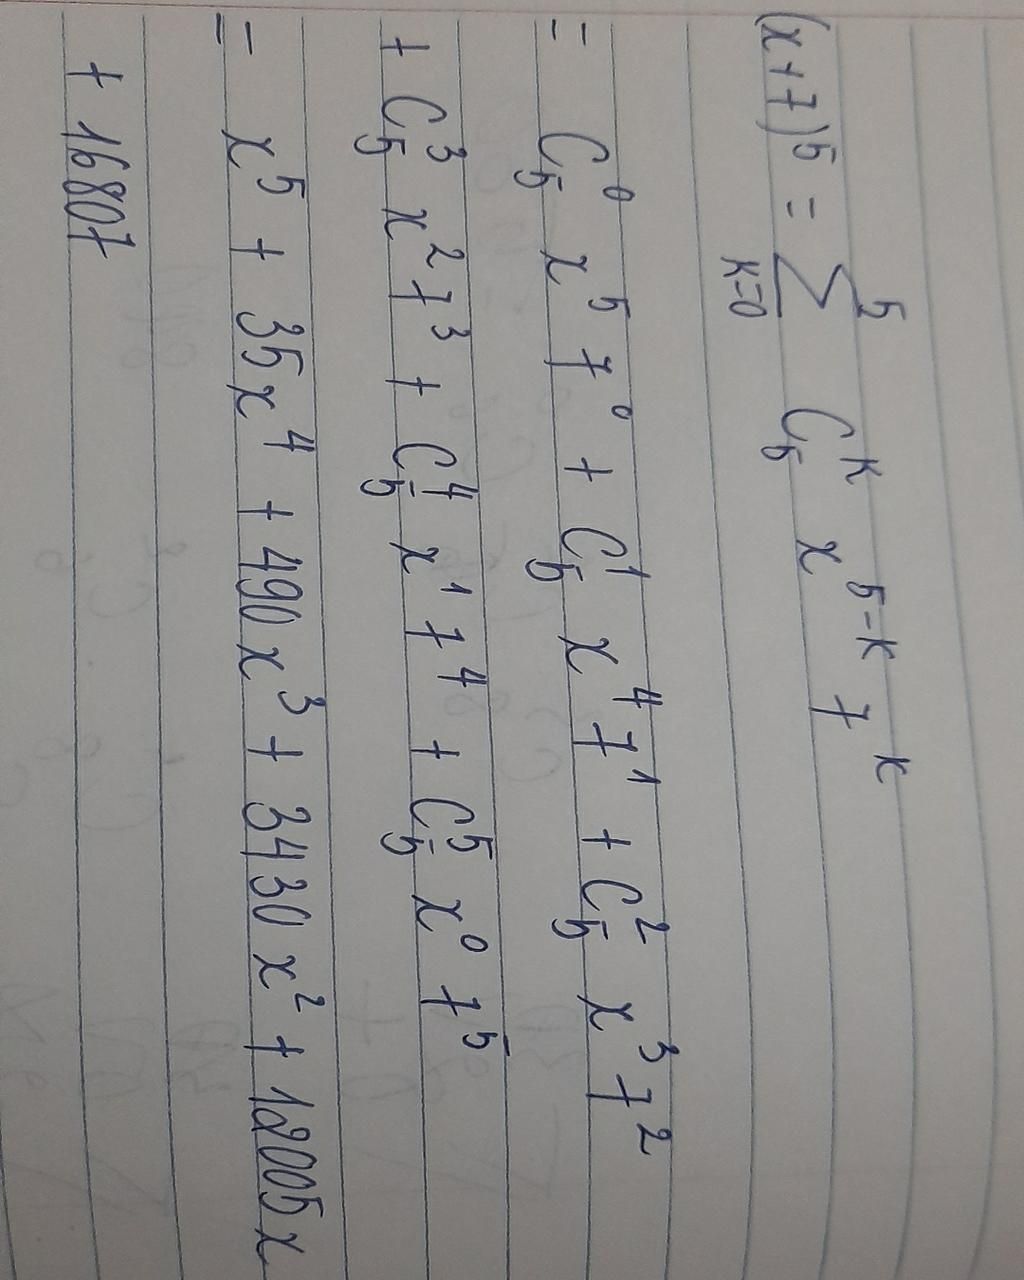 (x+7)⁵ = ∑_{k=0}^{5} C_5^k x^{5-k} 7^k
= C_5^0 x^5 7^0 + C_5^1 x^4 7^1 + C_5^2 x^3 7^2
+ C_5^3 x^2 7^3 + C_5^4 x^1 7^4 + C_5^5 x^0 7^5
= x^5 + 35x^4 + 490x^3 + 3430x^2 + 12005x
+ 16807